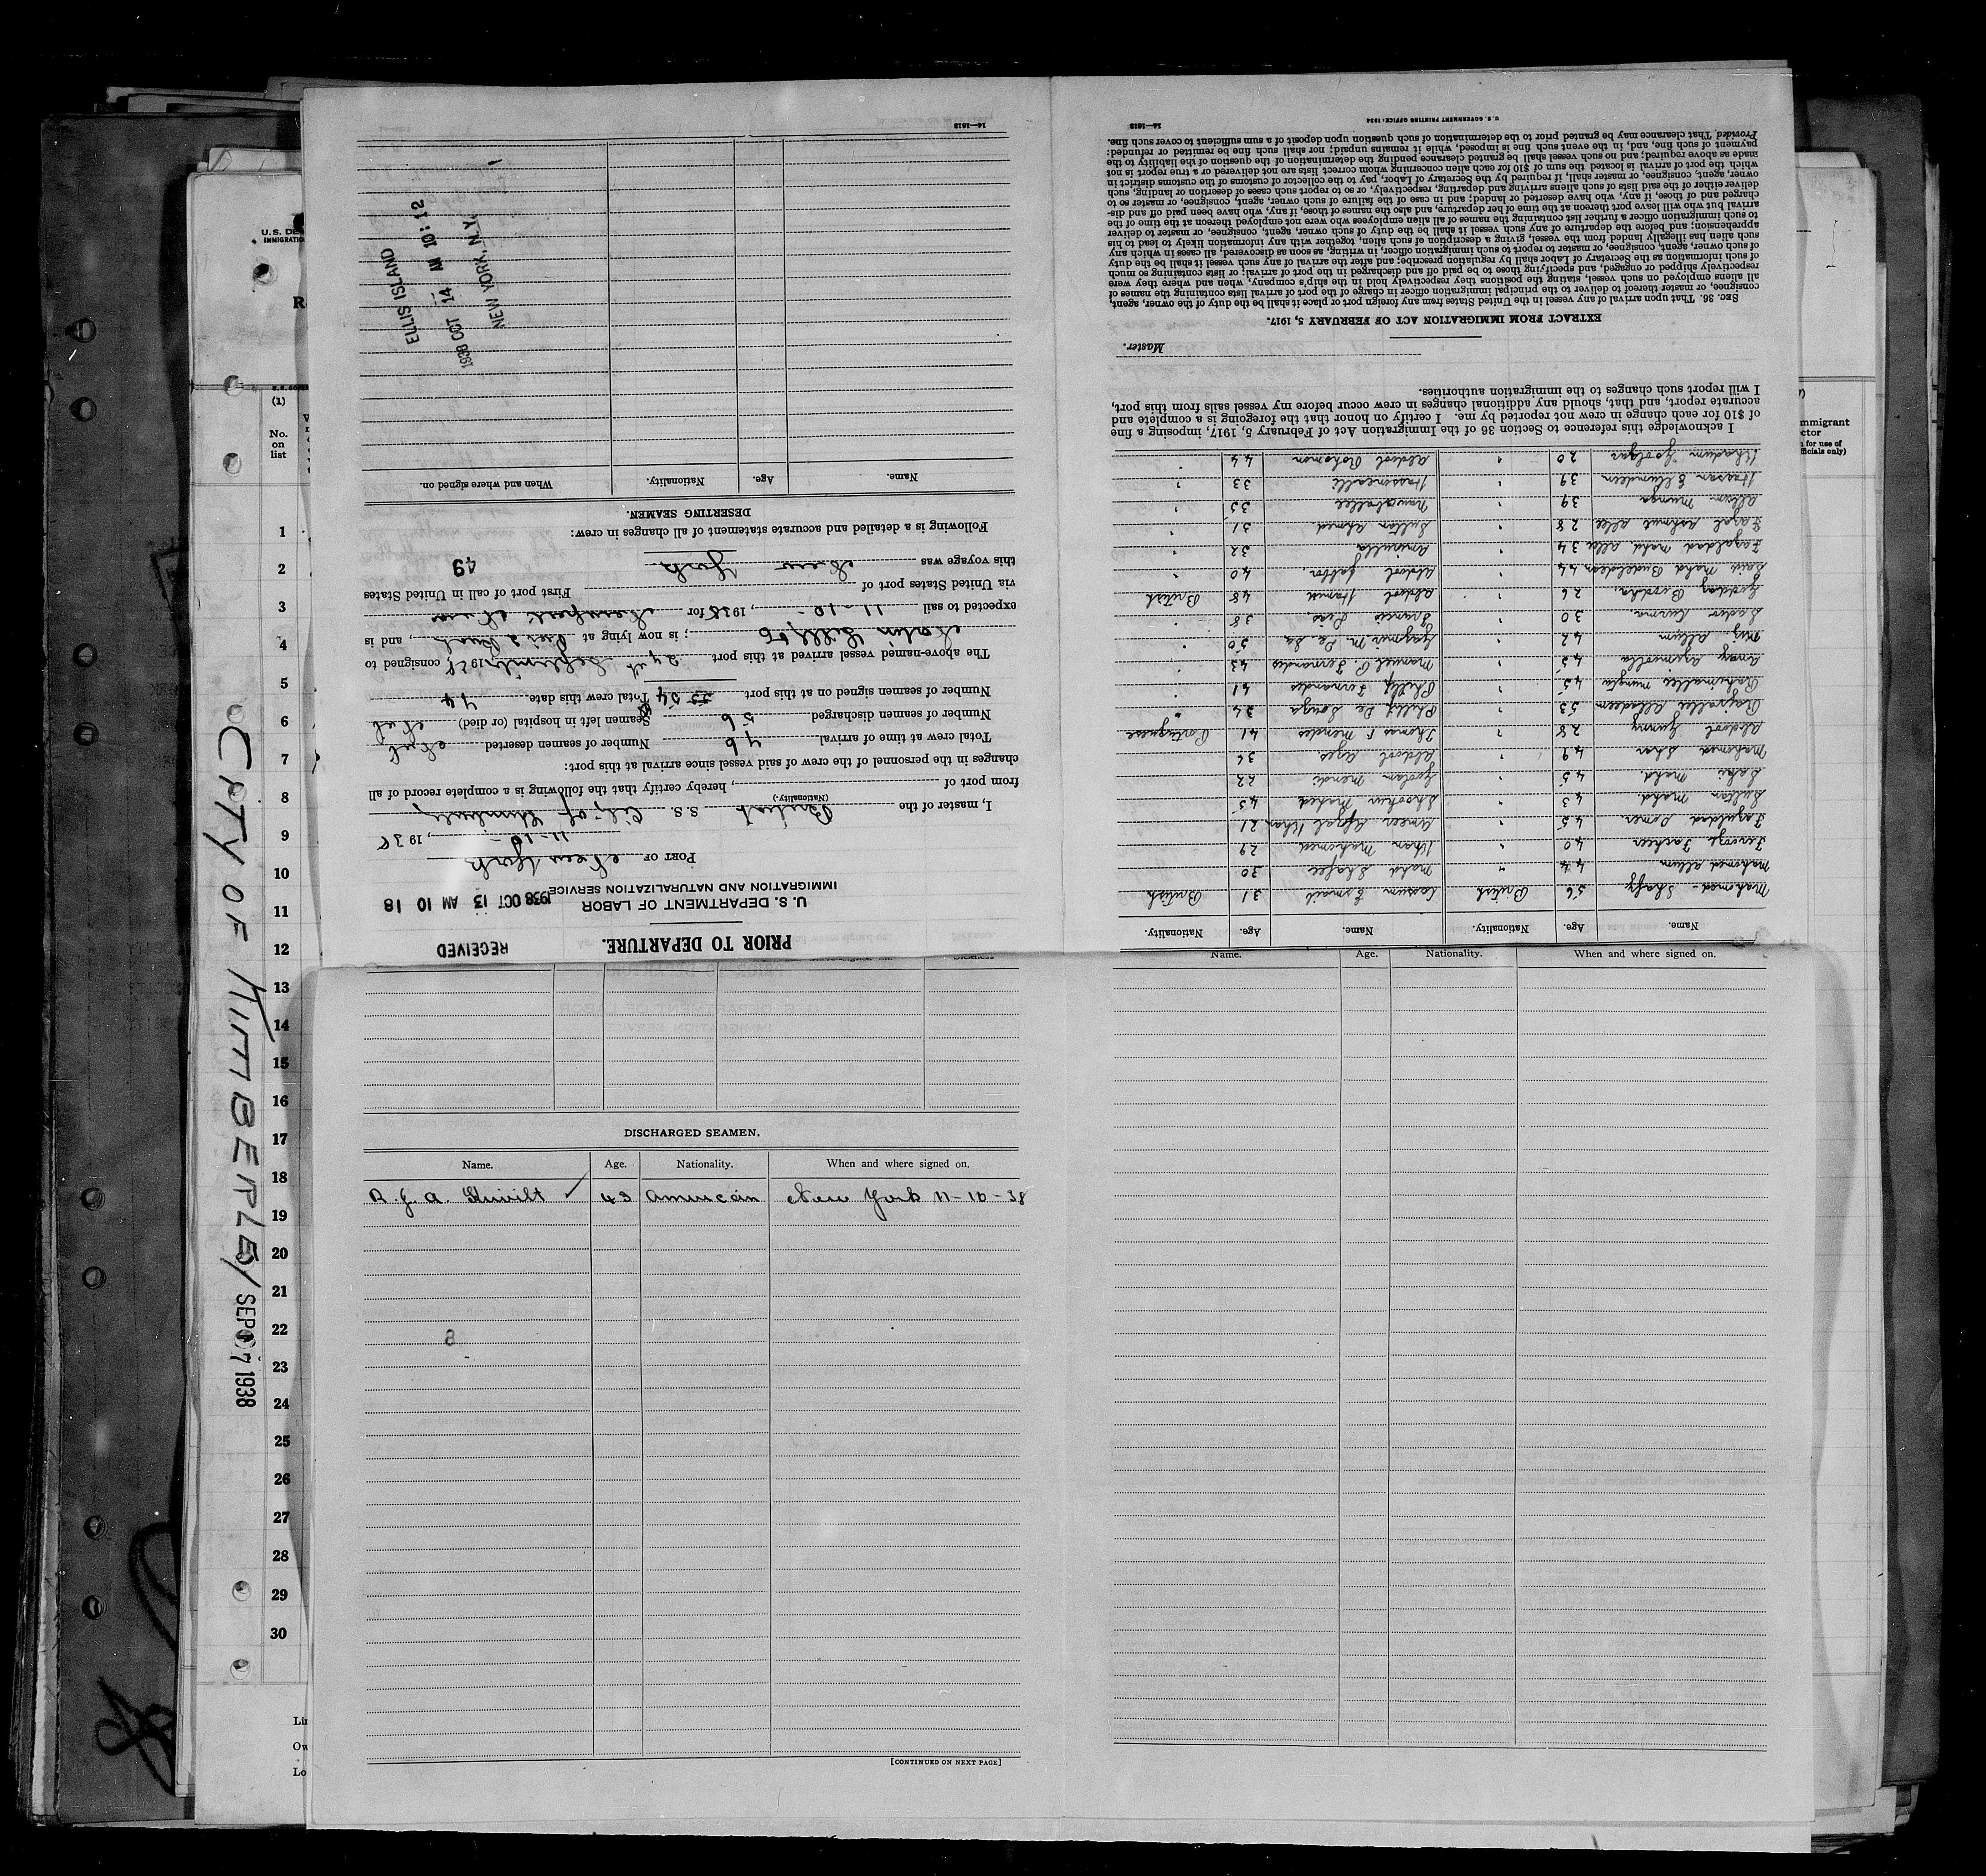 PRIOR TO DEPARTURE.
RECEIVED
U. S. DEPARTMENT OF LABOR
IMMIGRATION AND NATURALIZATION SERVICE
1938 OCT 13 AM 10 18
PORT OF New York
11-10-, 1938
I, master of the British S. S. City of Kimberley
(Nationality.)
from port of , hereby certify that the following is a complete record of all
changes in the personnel of the crew of said vessel since arrival at this port:
Total crew at time of arrival 46 Number of seamen deserted
Number of seamen discharged 56 Seamen left in hospital (or died)
Number of seamen signed on at this port 54 Total crew this date 44
The above-named vessel arrived at this port 24th September 1938, consigned to
; is now lying at , and is
expected to sail 11-10-, 1938 for Newport News
via United States port of First port of call in United States
this voyage was New York
49
Following is a detailed and accurate statement of all changes in crew:
DESERTING SEAMEN.
Name. Age. Nationality. When and where signed on.
ELLIS ISLAND
1938 OCT 14 AM 10:12
NEW YORK N.Y.
14—1613
Name. Age. Nationality. Name. Age. Nationality.
Mahomed Shaffy 56 British Cassum Esmail 31 British
Mahomed Allum 44 " Mahd Shafee 30
Feroze Fakeer 40 " Khan Mahomed 29
Fazuldad Oomer 45 " Ameer Afzal Khan 21
Sultan Mahd. 43 " Mahed 45
Mahd. 45 " Goolam 22
Mahomed Sher 49 " Abdool Azes 36
Abdool Gunny 28 " Thomas F. Mendes 41 Portuguese
53 " Phillip De Souza 34 "
45 " Phillip Fernandes 41 "
43 " Manuel C. Fernandes 43 "
Allum 42 " M. De Sa 50 "
30 " Francis Dias 38 "
26 " Abdool Hamid 48 British
Mahd. 44 " Abdool Jabbar 40 "
Fazuldad Mahd. Allee 34 " 32 "
Fazal Allee 28 " Sultan Ahmed 31 "
Allum 39 " 35 "
Hassan 39 " 33 "
20 " Abdool Rohomon 44 "
I acknowledge this reference to Section 36 of the Immigration Act of February 5, 1917, imposing a fine
of $10 for each change in crew not reported by me. I certify on honor that the foregoing is a complete and
accurate report, and that, should any additional changes in crew occur before my vessel sails from this port,
I will report such changes to the immigration authorities.
Master.
EXTRACT FROM IMMIGRATION ACT OF FEBRUARY 5, 1917.
SEC. 36. That upon arrival of any vessel in the United States from any foreign port or place it shall be the duty of the owner, agent,
consignee, or master thereof to deliver to the principal immigration officer in charge of the port of arrival lists containing the names of
all aliens employed on such vessel, stating the positions they respectively hold in the ship's company, when and where they were
respectively shipped or engaged, and specifying those to be paid off and discharged in the port of arrival; or lists containing so much
of such information as the Secretary of Labor shall by regulation prescribe; and after the arrival of any such vessel it shall be the duty
of such owner, agent, consignee, or master to report to such immigration officer, in writing, as soon as discovered, all cases in which any
such alien has illegally landed from the vessel, giving a description of such alien, together with any information likely to lead to his
apprehension; and before the departure of any such vessel it shall be the duty of such owner, agent, consignee, or master to deliver
to such immigration officer a further list containing the names of all alien employees who were not employed thereon at the time of the
arrival but who will leave port thereon at the time of her departure, and also the names of those, if any, who have been paid off and dis-
charged and of those, if any, who have deserted or landed; and in case of the failure of such owner, agent, consignee, or master so to
deliver either of the said lists of such aliens arriving and departing, respectively, or so to report such cases of desertion or landing, such
owner, agent, consignee, or master shall, if required by the Secretary of Labor, pay to the collector of customs of the customs district in
which the port of arrival is located the sum of $10 for each alien concerning whom correct lists are not delivered or a true report is not
made as above required; and no such vessel shall be granted clearance pending the determination of the question of the liability to the
payment of such fine, and, in the event such fine is imposed, while it remains unpaid; nor shall such fine be remitted or refunded:
Provided, That clearance may be granted prior to the determination of such question upon deposit of a sum sufficient to cover such fine.
U. S. GOVERNMENT PRINTING OFFICE: 1934
14—1613
Name. Age. Nationality. When and where signed on.
DISCHARGED SEAMEN.
Name. Age. Nationality. When and where signed on.
R. J. A. 43 American New York 11-10-38
8
[CONTINUED ON NEXT PAGE]
CITY OF KIMBERLEY SEP 07 1938
U.S. DE
IMMIGRATIO
R
(1)
No.
on
list
1
2
3
4
5
6
7
8
9
10
11
12
13
14
15
16
17
18
19
20
21
22
23
24
25
26
27
28
29
30
Li
Ow
Lo
mmigrant
ctor
for use of
fficials only)